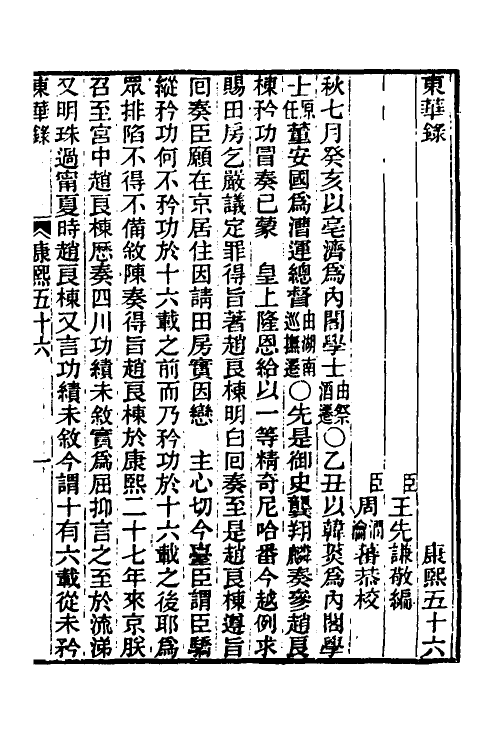 東華錄　康熙五十六
臣王先謙敬編
臣周潤蕃瀹蕃恭校
秋七月癸亥以毫濟爲內閣學士由祭酒遷〇乙丑以韓菼爲內閣學
士原任董安國爲漕運總督由湖南巡撫遷〇先是御史龔翔麟奏參趙良
棟矜功冒奏已蒙　皇上隆恩給以一等精奇尼哈番今越例求
賜田房乞嚴議定罪得旨著趙良棟明白回奏至是趙良棟遵旨
回奏臣願在京居住因請田房實因戀　主心切今臺臣謂臣驕
縱矜功何不矜功於十六載之前而乃矜功於十六載之後耶爲
眾排陷不得不備敘陳奏得旨趙良棟於康熙二十七年來京朕
召至宮中趙良棟歷奏四川功績未敘實爲屈抑言之至於流涕
又明珠過甯夏時趙良棟又言功績未敘今謂十有六載從未矜
東華錄　康熙五十六　一